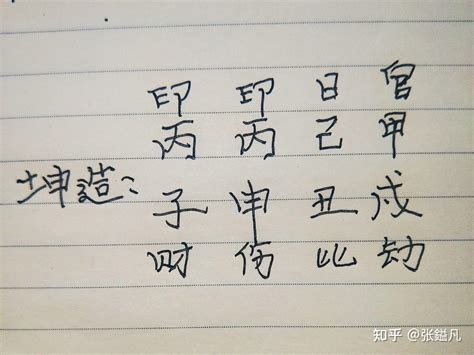 印 印 日 官
丙 丙 己 甲
坤造: 子 申 丑 戌
财 伤 比 劫
知乎 @张鎰凡